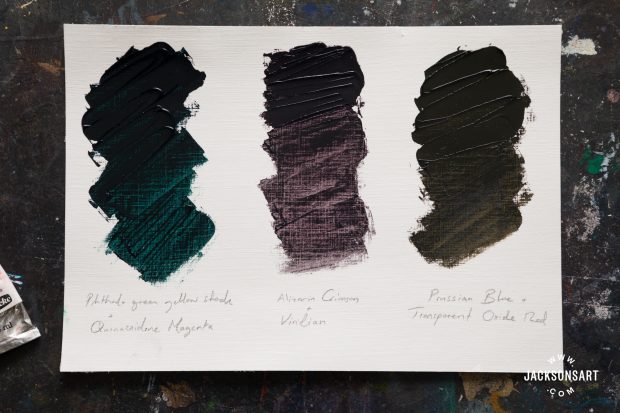 Phthalo green yellow shade
+
Quinacridone Magenta
Alizarin Crimson
+
Viridian
Prussian Blue +
Transparent Oxide Red
WWW
JACKSONSART
.COM